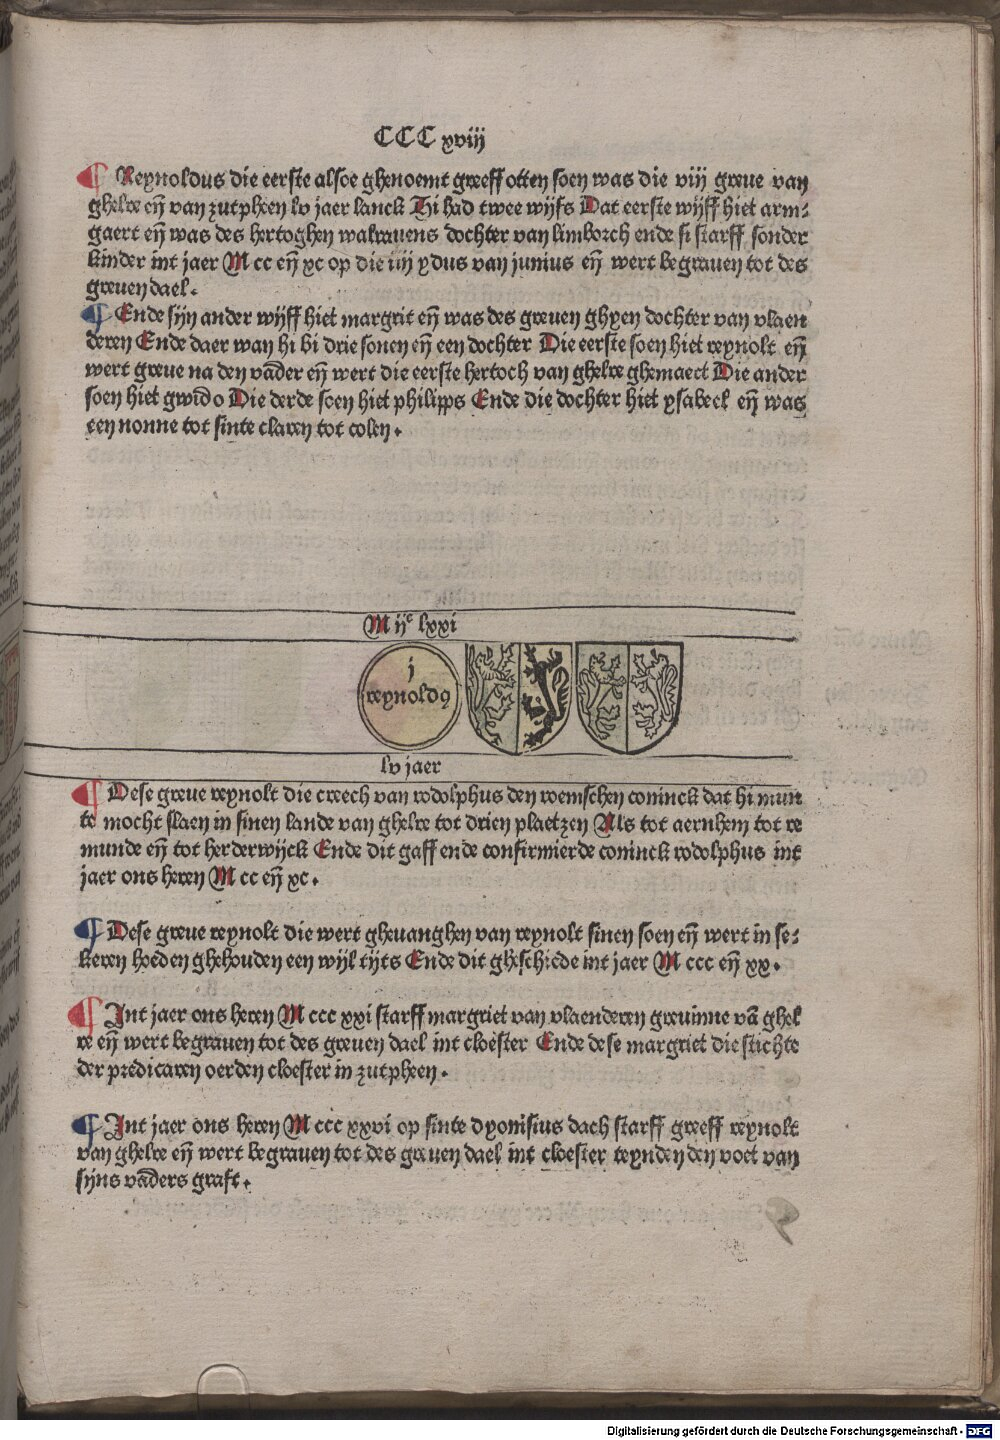 CCC xviij
¶ Reynoldus die eerste alsoe ghenoemt greeff otten soen was die viij greue van
ghelre eñ van zutpheen lv jaer lanck Hi had twee wijfs Dat eerste wijff hiet arm⸗
gaert eñ was des hertoghen walrauens dochter van limborch ende si starff sonder
kinder int jaer M cc eñ xc op die iiij ydus van junius eñ wert begrauen tot des
greuen dael.
¶ Ende sijn ander wijff hiet margrit eñ was des greuen ghyen dochter van vlaen
deren Ende daer wan hi bi drie sonen eñ een dochter Die eerste soen hiet reynolt eñ
wert greue na den vader eñ wert die eerste hertoch van ghelre ghemaect Die ander
soen hiet gwido Die derde soen hiet philipps Ende die dochter hiet ysabeel eñ was
een nonne tot sinte claren tot colen.
M ijᶜ lxxi
j
reynoldꝰ
lv jaer
¶ Dese greue reynolt die creech van rodolphus den roemschen coninck dat hi mun
te mocht slaen in sinen lande van ghelre tot drien plaetzen Als tot aernhem tot re
munde eñ tot herderwijck Ende dit gaff ende confirmierde coninck rodolphus int
jaer ons heren M cc eñ xc.
¶ Dese greue reynolt die wert gheuanghen van reynolt sinen soen eñ wert in se⸗
keren hoeden ghehouden een wijl tijts Ende dit gheschiede int jaer M ccc eñ xx.
¶ Int jaer ons heren M ccc xxi starff margriet van vlaenderen greuinne vã ghel
re eñ wert begrauen tot des greuen dael int cloester Ende dese margriet die stichte
der predicaren oerden cloester in zutpheen.
¶ Int jaer ons heren M ccc xxvi op sinte dyonisius dach starff greeff reynolt
van ghelre eñ wert begrauen tot des greuen dael int cloester teynden den voet van
sijns vaders graft.
Digitalisierung gefördert durch die Deutsche Forschungsgemeinschaft - DFG